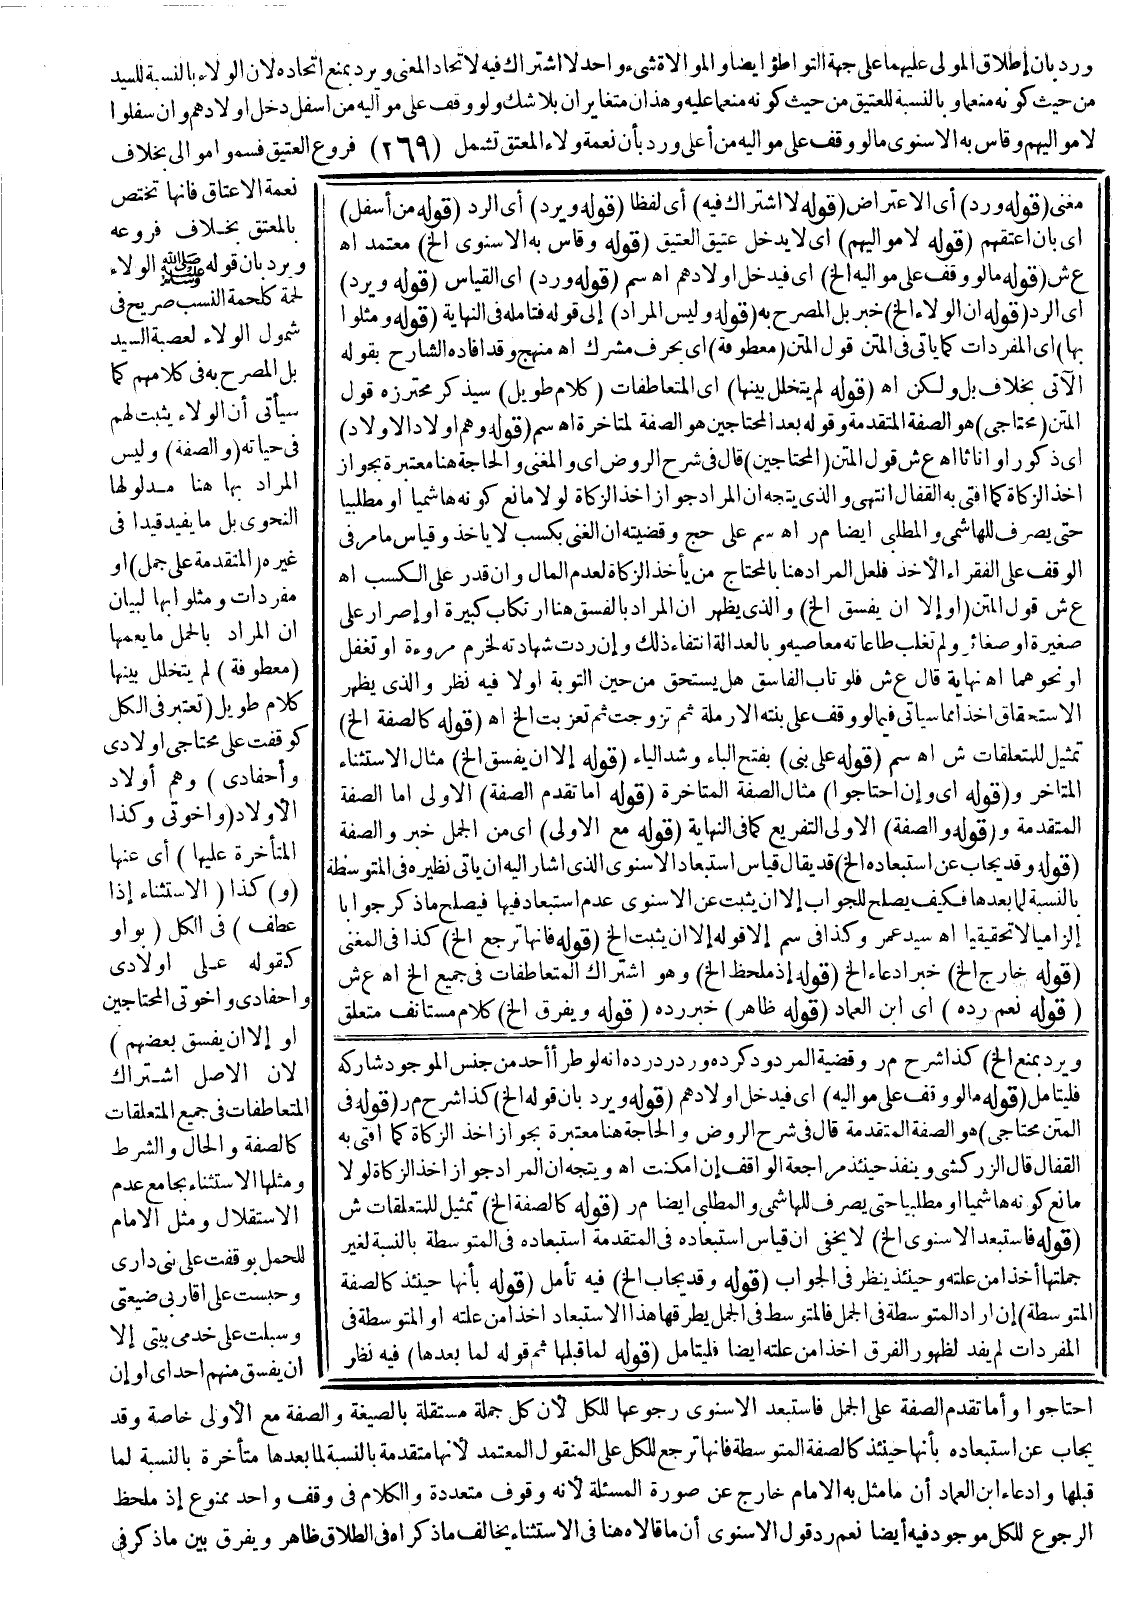 ورد بان إطلاق المولى عليهما على جهة التواطؤ ايضا والموالاة شىء واحد لا اشتراك فيه لاتحاد المعنى ويرد بمنع اتحاده لان الولاء بالنسبة للسيد
من حيث كونه منعما وبالنسبة للعتيق من حيث كونه منعما عليه وهذان متغايران بلا شك ولو وقف على مواليه من اسفل دخل اولادهم وان سفلوا
لا مواليهم وقاس به الاسنوى مالو وقف على مواليه من أعلى ورد بأن نعمة ولاء المعتق تشمل (٢٦٩) فروع العتيق فسموا موالى بخلاف
نعمة الاعتاق فانها تختص
بالمعتق بخلاف فروعه
ويرد بان قوله ﷺ الولاء
لحمة كلحمة النسب صريح فى
شمول الولاء لعصبة السيد
بل المصرح به فى كلامهم كما
سيأتى أن الولاء يثبت لهم
فى حياته (والصفة) وليس
المراد بها هنا مدلولها
النحوى بل ما يفيد قيدا فى
غيره (المتقدمة على جمل) او
مفردات ومثلوا بها لبيان
ان المراد بالجمل ما يعمها
(معطوفة) لم يتخلل بينها
كلام طويل (تعتبر فى الكل
كوقفت على محتاجى اولادى
وأحفادى) وهم أولاد
الأولاد (واخوتى وكذا
المتأخرة عليها) أى عنها
(و) كذا (الاستثناء إذا
عطف) فى الكل (بواو
كقوله على اولادى
واحفادى واخوتى المحتاجين
او إلا ان يفسق بعضهم)
لان الاصل اشتراك
المتعاطفات فى جميع المتعلقات
كالصفة والحال والشرط
ومثلها الاستثناء بجامع عدم
الاستقلال ومثل الامام
للجمل بوقفت على بنى دارى
وحبست على اقاربى ضيعتى
وسبلت على خدمى بيتى إلا
ان يفسق منهم احد اى او إن
احتاجوا وأما تقدم الصفة على الجمل فاستبعد الاسنوى رجوعها للكل لأن كل جملة مستقلة بالصيغة والصفة مع الأولى خاصة وقد
يجاب عن استبعاده بأنها حينئذ كالصفة المتوسطة فانها ترجع للكل على المنقول المعتمد لأنها متقدمة بالنسبة لما بعدها متأخرة بالنسبة لما
قبلها وادعاء ابن العماد أن ما مثل به الامام خارج عن صورة المسئلة لأنه وقوف متعددة والكلام فى وقف واحد ممنوع إذ ملحظ
الرجوع للكل موجود فيه أيضا نعم رد قول الاسنوى أن ما قالاه هنا فى الاستثناء يخالف ما ذكراه فى الطلاق ظاهر ويفرق بين ما ذكر فى
مغنى (قوله ورد) أى الاعتراض (قوله لا اشتراك فيه) أى لفظا (قوله ويرد) أى الرد (قوله من أسفل)
اى بان اعتقهم (قوله لا مواليهم) اى لا يدخل عتيق العتيق (قوله وقاس به الاسنوى الخ) معتمد اه
ع ش (قوله مالو وقف على مواليه الخ) اى فيدخل اولادهم اه سم (قوله ورد) اى القياس (قوله ويرد)
اى الرد (قوله ان الولاء الخ) خبر بل المصرح به (قوله وليس المراد) إلى قوله فتامله فى النهاية (قوله ومثلوا
بها) اى المفردات كما ياتى فى المتن قول المتن (معطوفة) اى بحرف مشرك اه منهج وقد افاده الشارح بقوله
الآتى بخلاف بل ولكن اه (قوله لم يتخلل بينها) اى المتعاطفات (كلام طويل) سيذكر محترزه قول
المتن (محتاجى) هو الصفة المتقدمة وقوله بعد المحتاجين هو الصفة لمتاخرة اه سم (قوله وهم اولاد الاولاد)
اى ذكورا واناثا اه ع ش قول المتن (المحتاجين) قال فى شرح الروض اى والمغنى والحاجة هنا معتبرة بجواز
اخذ الزكاة كما افتى به القفال انتهى والذى يتجه ان المراد جواز اخذ الزكاة لولا مانع كونه هاشميا او مطلبيا
حتى يصرف للهاشمى والمطلبى ايضا م ر اه سم على حج وقضيته ان الغنى بكسب لا ياخذ وقياس ما مر فى
الوقف على الفقراء الأخذ فلعل المراد هنا بالمحتاج من يأخذ الزكاة لعدم المال وان قدر على الكسب اه
ع ش قول المتن (او إلا ان يفسق الخ) والذى يظهر ان المراد بالفسق هنا ارتكاب كبيرة او إصرار على
صغيرة او صغائر ولم تغلب طاعاته معاصيه وبالعدالة انتفاء ذلك وإن ردت شهادته لخرم مروءة او تغفل
او نحوهما اه نهاية قال ع ش فلو تاب الفاسق هل يستحق من حين التوبة او لا فيه نظر والذى يظهر
الاستحقاق اخذا مما سياتى فيما لو وقف على بنته الارملة ثم تزوجت ثم تعزبت الخ اه (قوله كالصفة الخ)
تمثيل للمتعلقات ش اه سم (قوله على بنى) بفتح الباء وشد الياء (قوله إلا ان يفسق الخ) مثال الاستثناء
المتاخر و(قوله اى وإن احتاجوا) مثال الصفة المتاخرة (قوله اما تقدم الصفة) الاولى اما الصفة
المتقدمة و(قوله والصفة) الاولى التفريع كما فى النهاية (قوله مع الاولى) اى من الجمل خبر والصفة
(قوله وقد يجاب عن استبعاده الخ) قد يقال قياس استبعاد الاسنوى الذى اشار اليه ان ياتى نظيره فى المتوسطة
بالنسبة لما بعدها فكيف يصلح للجواب إلا ان يثبت عن الاسنوى عدم استبعاد فيها فيصلح ما ذكر جوابا
إلزاميا لا تحقيقيا اه سيد عمر وكذا فى سم إلا قوله إلا ان يثبت الخ (قوله فانها ترجع الخ) كذا فى المغنى
(قوله خارج الخ) خبر ادعاء الخ (قوله إذ ملحظ الخ) وهو اشتراك المتعاطفات فى جميع الخ اه ع ش
(قوله نعم رده) اى ابن العماد (قوله ظاهر) خبر رده (قوله ويفرق الخ) كلام مستانف متعلق
ويرد بمنع الخ) كذا شرح م ر وقضية المردود كرده ورد رده انه لو طرأ أحد من جنس الموجود شاركه
فليتامل (قوله مالو وقف على مواليه) اى فيدخل اولادهم (قوله ويرد بان قوله الخ) كذا شرح م ر (قوله فى
المتن محتاجى) هو الصفة المتقدمة قال فى شرح الروض والحاجة هنا معتبرة بجواز اخذ الزكاة كما افتى به
القفال قال الزركشى وينفذ حينئذ مراجعة الواقف إن امكنت اه ويتجه ان المراد جواز اخذ الزكاة لولا
مانع كونه هاشميا او مطلبيا حتى يصرف للهاشمى والمطلبى ايضا م ر (قوله كالصفة الخ) تمثيل للمتعلقات ش
(قوله فاستبعد الاسنوى الخ) لا يخفى ان قياس استبعاده فى المتقدمة استبعاده فى المتوسطة بالنسبة لغير
جملتها أخذا من علته وحينئذ ينظر فى الجواب (قوله وقد يجاب الخ) فيه تأمل (قوله بأنها حينئذ كالصفة
المتوسطة) إن اراد المتوسطة فى الجمل فالمتوسط فى الجمل يطرقها هذا الاستبعاد اخذا من علته او المتوسطة فى
المفردات لم يفد لظهور الفرق اخذا من علته ايضا فليتامل (قوله لما قبلها ثم قوله لما بعدها) فيه نظر